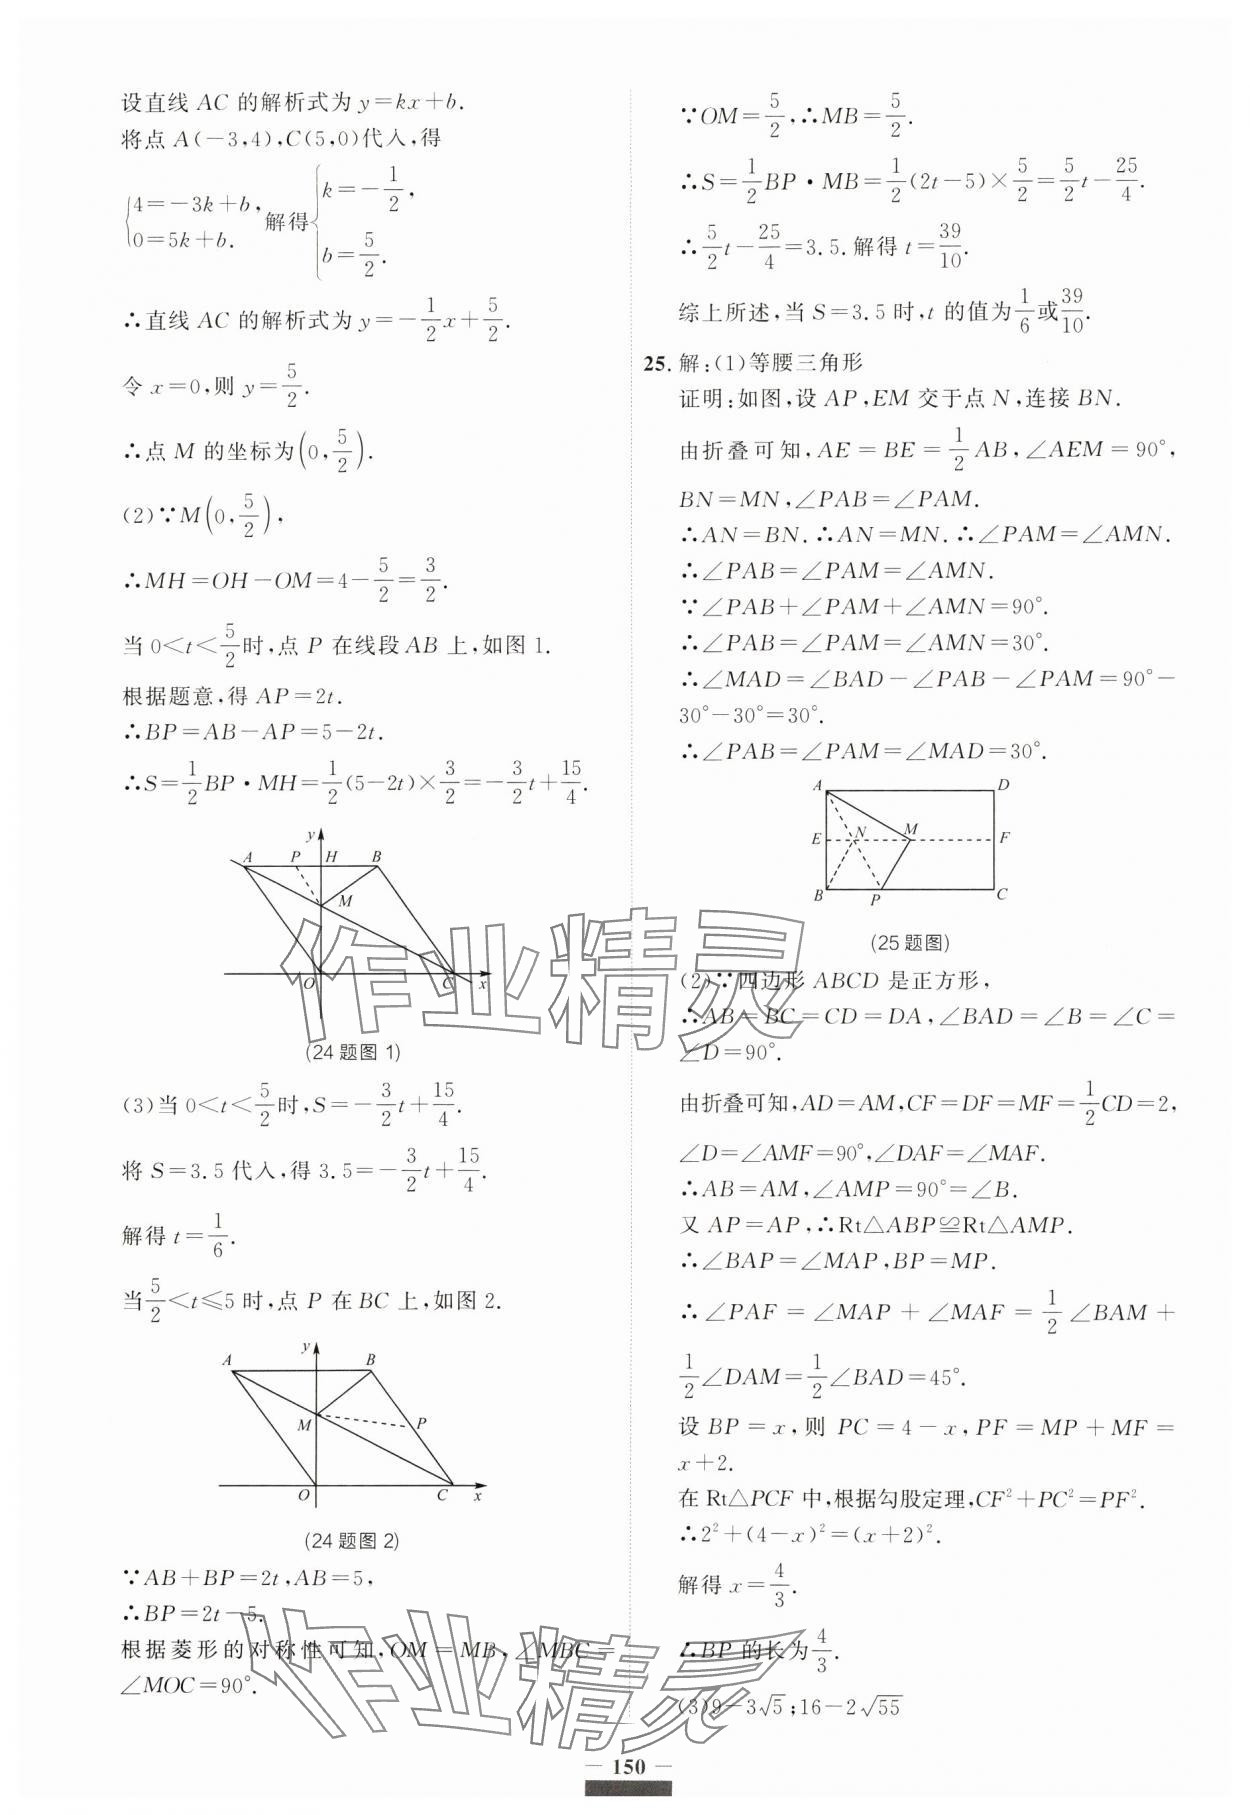 设直线 AC 的解析式为 y=kx+b.
将点 A(-3,4),C(5,0)代入,得
{4=-3k+b, 0=5k+b. 解得{k=-1/2, b=5/2.
∴直线 AC 的解析式为 y=-1/2x+5/2.
令 x=0,则 y=5/2.
∴点 M 的坐标为(0,5/2).
(2)∵M(0,5/2),
∴MH=OH-OM=4-5/2=3/2.
当 0<t<5/2时,点 P 在线段 AB 上,如图 1.
根据题意,得 AP=2t.
∴BP=AB-AP=5-2t.
∴S=1/2BP·MH=1/2(5-2t)×3/2=-3/2t+15/4.
y
A P H B
M
O C x
(24 题图 1)
(3)当 0<t<5/2时,S=-3/2t+15/4.
将 S=3.5 代入,得 3.5=-3/2t+15/4.
解得 t=1/6.
当5/2<t≤5 时,点 P 在 BC 上,如图 2.
y
A B
M P
O C x
(24 题图 2)
∵AB+BP=2t,AB=5,
∴BP=2t-5.
根据菱形的对称性可知,OM=MB,∠MBC=
∠MOC=90°.
∵OM=5/2,∴MB=5/2.
∴S=1/2BP·MB=1/2(2t-5)×5/2=5/2t-25/4.
∴5/2t-25/4=3.5.解得 t=39/10.
综上所述,当 S=3.5 时,t 的值为1/6或39/10.
25.解:(1)等腰三角形
证明:如图,设 AP,EM 交于点 N,连接 BN.
由折叠可知,AE=BE=1/2AB,∠AEM=90°,
BN=MN,∠PAB=∠PAM.
∴AN=BN.∴AN=MN.∴∠PAM=∠AMN.
∴∠PAB=∠PAM=∠AMN.
∵∠PAB+∠PAM+∠AMN=90°.
∴∠PAB=∠PAM=∠AMN=30°.
∴∠MAD=∠BAD-∠PAB-∠PAM=90°-
30°-30°=30°.
∴∠PAB=∠PAM=∠MAD=30°.
A D
E N M F
B P C
(25 题图)
(2)∵四边形 ABCD 是正方形,
∴AB=BC=CD=DA,∠BAD=∠B=∠C=
∠D=90°.
由折叠可知,AD=AM,CF=DF=MF=1/2CD=2,
∠D=∠AMF=90°,∠DAF=∠MAF.
∴AB=AM,∠AMP=90°=∠B.
又 AP=AP,∴Rt△ABP≌Rt△AMP.
∴∠BAP=∠MAP,BP=MP.
∴∠PAF=∠MAP+∠MAF=1/2∠BAM+
1/2∠DAM=1/2∠BAD=45°.
设 BP=x,则 PC=4-x,PF=MP+MF=
x+2.
在 Rt△PCF 中,根据勾股定理,CF²+PC²=PF².
∴2²+(4-x)²=(x+2)².
解得 x=4/3.
∴BP 的长为4/3.
(3)9-3√5;16-2√55
150
作业精灵
作业精灵